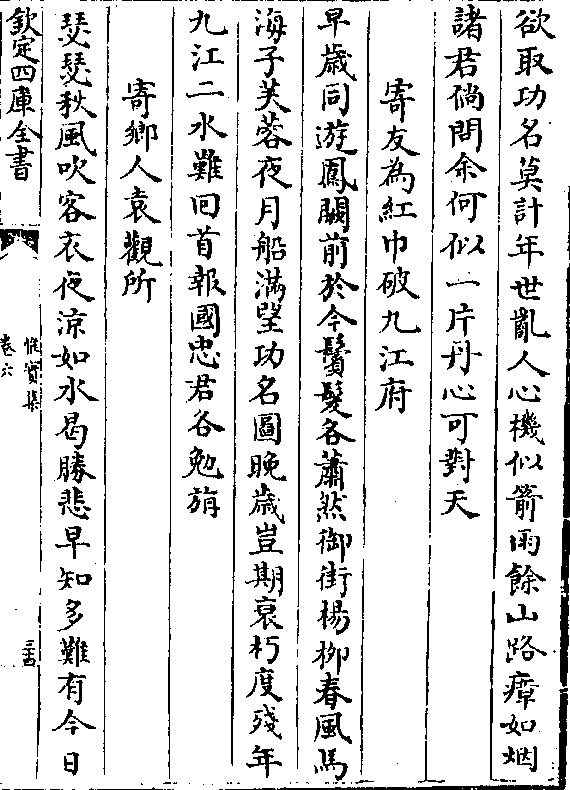 欲取功名莫計年世亂人心機似箭雨餘山路瘴如烟
諸君倘問余何似一片丹心可對天
寄友為紅巾破九江府
早歲同遊鳳闕前於今鬢髮各蕭然御街楊柳春風馬
海子芙蓉夜月船滿望功名圖晚歲豈期衰朽度殘年
九江二水難回首報國忠君各勉旃
寄鄉人袁觀所
瑟瑟秋風吹客衣夜涼如水曷勝悲早知多難有今日
欽定四庫全書
惟實集
卷六